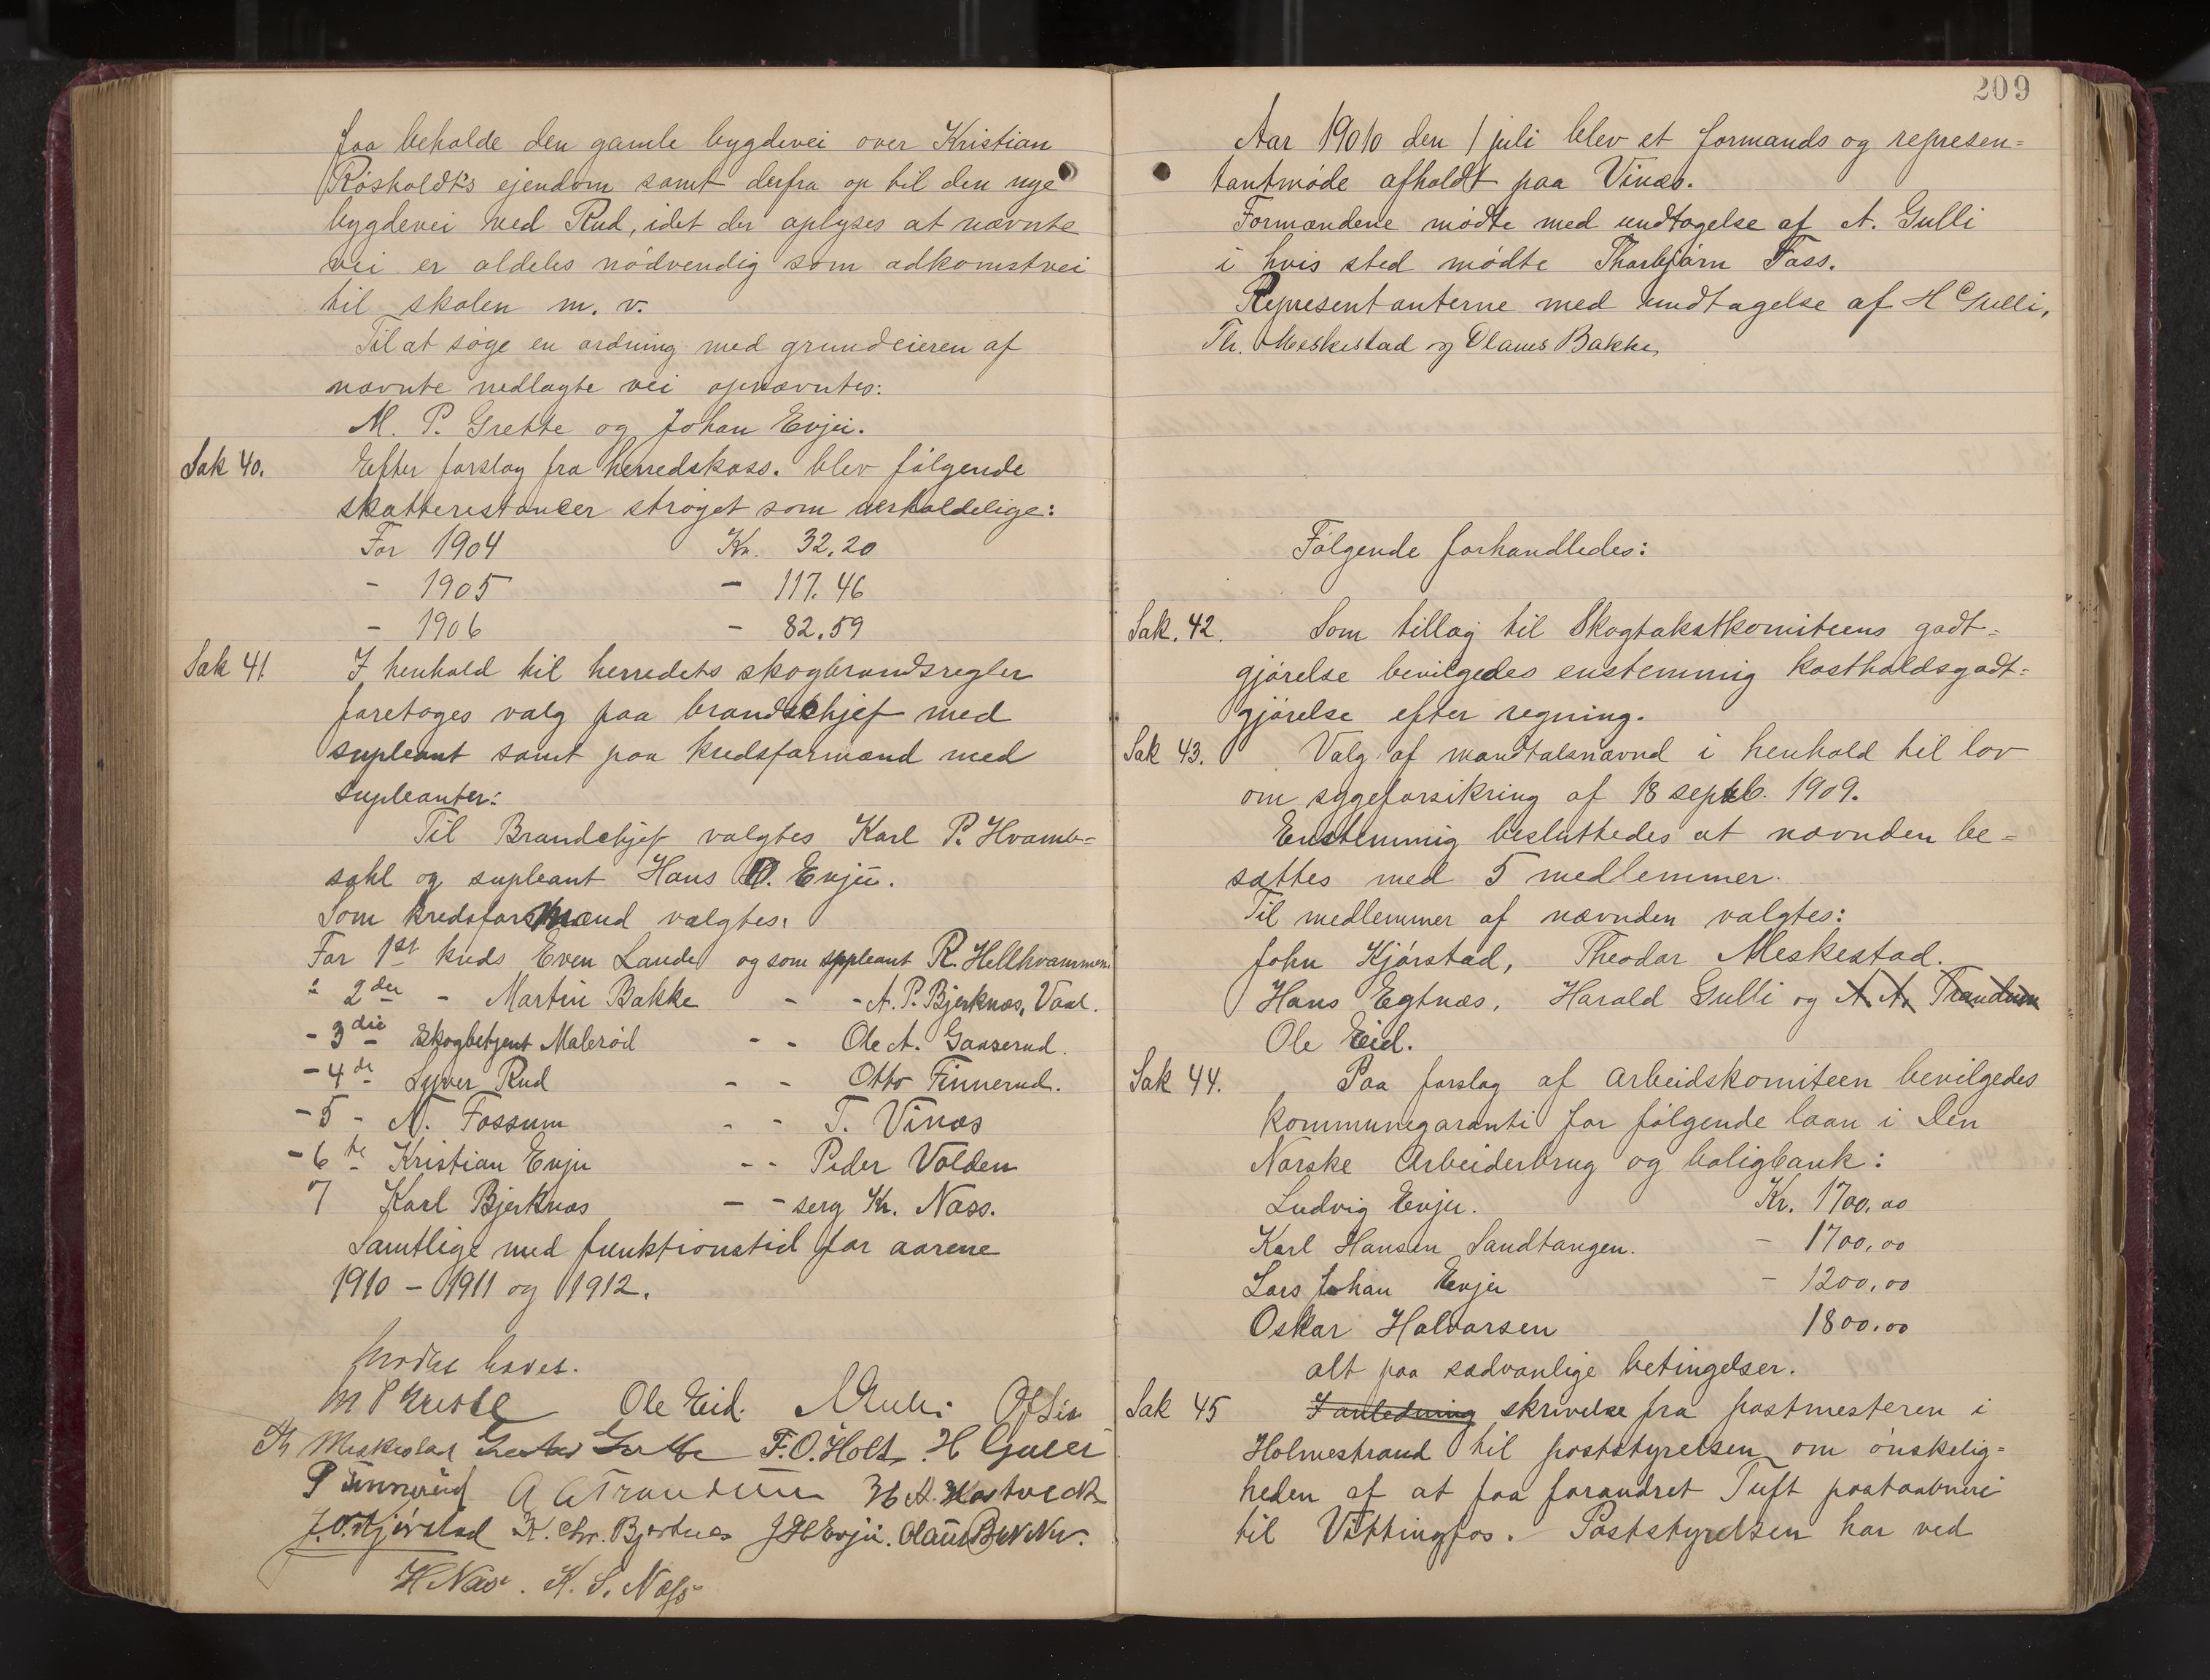 faa beholde den gamle bygdevei over Kristian
Røsholdt's ejendom samt derfra op til den nye
bygdevei ved Rud, idet der oplyses at nævnte
vei er aldeles nødvendig som adkomstvei
til skolen m. v.
Til at søge en ordning med grundeieren af
nævnte nedlagte vei opnævntes:
M. P. Grette og Johan Evju.
Sak 40. Efter forslag fra herredskass. blev følgende
skatterestancer strøget som uerholdelige:
For 1904 Kr. 32.20
- 1905 - 117.46
- 1906 - 82.59
Sak 41. I henhold til herredets skogbrandsregler
foretoges valg paa brandchjef med
supleant samt paa kredsformænd med
supleanter:
Til Brandchjef valgtes Karl P. Hvamb-
sahl og supleant Hans O. Evju.
Som kredsformænd valgtes:
For 1st kreds Even Lande og som suppleant R. Hellkvammen.
" 2den - Martin Bakke - - A. P. Bjerknæs, Vaal.
- 3die Skogbetjent Malerød - - Ole A. Gaaserud.
- 4de Syver Rud - - Otto Finnerud.
- 5 - N. Fossum - - T. Vinæs
- 6te Kristian Evju - - Peder Volden
7 Karl Bjerknæs - - serg Kr. Næss.
Samtlige med funktionstid for aarene
1910 - 1911 og 1912.
Mødet hævet.
M P Grette Ole Eid. A Gulli
Th Meskestad F. O. Holt. H Gulli
P Finnerud A A Trandum H A. Hostvedt
J. O. Kjørstad K. Chr. Bjerknes J H Evju. Olaus Bakke.
H Næss. K. S. Næss
209
Aar 1910 den 1 juli blev et formands og represen=
tantmøde afholdt paa Vinæs.
Formændene mødte med undtagelse af A. Gulli
i hvis sted mødte Thorbjørn Fass.
Representanterne med undtagelse af H Gulli,
Th. Meskestad og Olaus Bakke,
Følgende forhandledes:
Sak. 42. Som tillæg til Skogtakstkomiteens godt=
gjørelse bevilgedes enstemmig kostholdsgodt=
gjørelse efter regning.
Sak 43. Valg af mandtalsnævnd i henhold til lov
om sygeforsikring af 18 septb. 1909.
Enstemmig besluttedes at nævnden be=
sættes med 5 medlemmer.
Til medlemmer af nævnden valgtes:
John Kjørstad, Theodor Meskestad.
Hans Egtnæs, Harald Gulli og A. A. Trandum
Ole Eid.
Sak 44. Paa forslag af arbeidskomiteen bevilgedes
kommunegaranti for følgende laan i Den
Norske Arbeiderbrug og boligbank:
Ludvig Evju. Kr. 1700,00
Karl Hansen Sandtangen. - 1700,00
Lars Johan Evju - 1200,00
Oskar Halvorsen 1800.00
alt paa sædvanlige betingelser.
Sak 45 I anledning skrivelse fra postmesteren i
Holmestrand til poststyrelsen om ønskelig=
heden af at faa forandret Tuft postaabneri
til Vittingfos. Poststyrelsen har ved